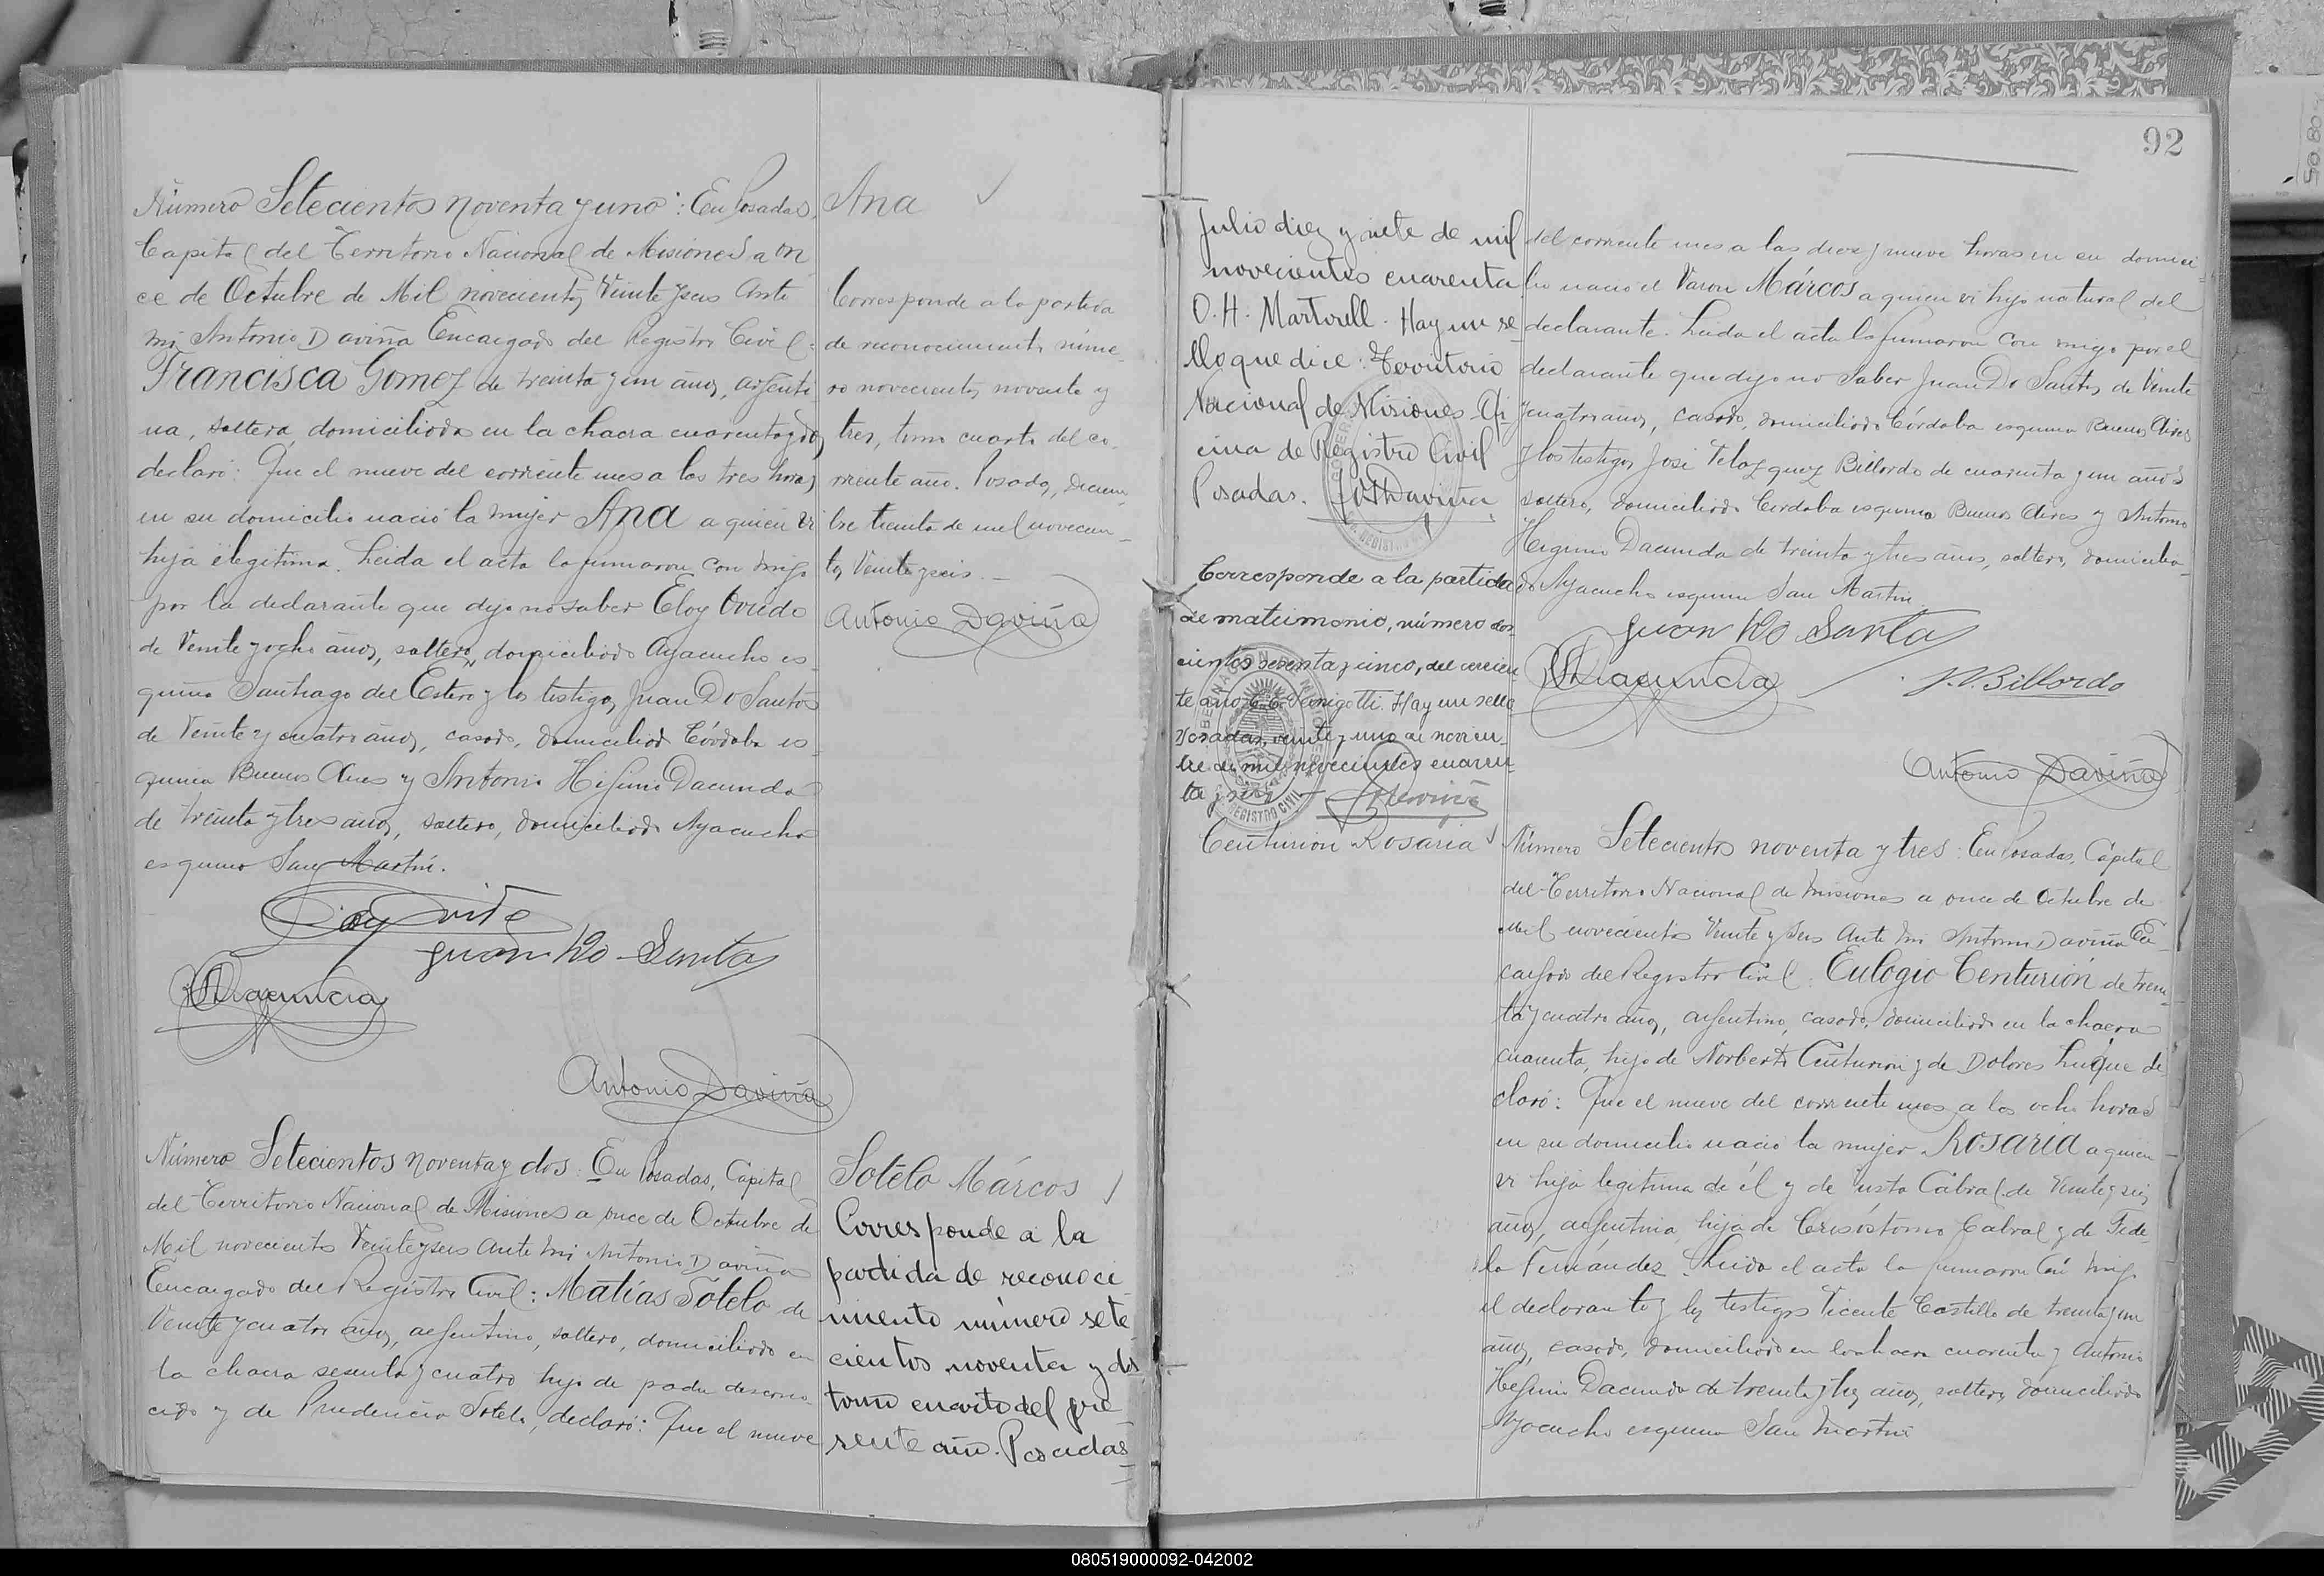 Número Setecientos noventa y uno: En Posadas,
Capital del Territorio Nacional de Misiones a on
ce de Octubre de Mil novecientos Veinte y seis Ante
mi Antonio Daviña Encargado del Registro Civil:
Francisca Gomez de treinta y un años, argenti
na, soltera, domiciliada en la chacra cuarenta y dos,
declaró: Que el nueve del corriente mes a las tres horas
en su domicilio nació la mujer Ana a quien vi
hija ilegitima. Leida el acta la firmaron con migo
por la declarante que dijo no saber Eloy Oviedo
de Veinte y ocho años, soltero, domiciliado Ayacucho es-
quina Santiago del Estero y los testigos, Juan Do Santos
de Veinte y cuatro años, casado, domiciliado Córdoba es-
quina Buenos Aires y Antonio Higinio Dacunda
de treinta y tres años, soltero, domiciliado Ayacucho
esquina San Martín.
Eloy Oviedo
Juan Do Santos
Dacunda
Antonio Daviña
Número Setecientos noventa y dos: En Posadas, Capital
del Territorio Nacional de Misiones a once de Octubre de
Mil novecientos Veinte y seis Ante mi Antonio Daviña
Encargado del Registro Civil: Matías Sotelo de
Veinte y cuatro años, argentino, soltero, domiciliado en
la chacra sesenta y cuatro hijo de padre descono-
cido y de Prudencia Sotelo, declaró: Que el nueve
Ana
Corresponde a la partida
de reconocimiento núme-
ro novecientos noventa y
tres, tomo cuarto del co-
rriente año. Posadas, Diciem-
bre treinta de mil novecien-
tos Veinte y seis. –
Antonio Daviña
Sotelo Márcos
Corresponde a la
partida de reconoci
miento número sete
cientos noventa y dos
tomo cuarto del pre
sente año. Posadas
92
Julio diez y siete de mil
novecientos cuarenta
O. H. Martorell. Hay un se-
llo que dice: Territorio
Nacional de Misiones Ofi
cina de Registro Civil
Posadas.
Corresponde a la partida
de matrimonio, número dos-
cientos sesenta y cinco, del corrien
te año. Hay un sello
Posadas, veinte y uno de noviem-
bre de mil novecientos cuaren-
ta y
REGISTRO CIVIL
Centurion Rosaria
del corriente mes a las diez y nueve horas en su domici
lio nació el Varon Márcos a quien vi hijo natural del
declarante. Leida el acta la firmaron con migo por el
declarante que dijo no saber Juan Do Santos, de Veinte
y cuatro años, casado, domiciliado Córdoba esquina Buenos Aires
y los testigos José Velazquez Billordo de cuarenta y un años
soltero, domiciliado Cordoba esquina Buenos Aires y Antonio
Higinio Dacunda de treinta y tres años, soltero, domicilia-
do Ayacucho esquina San Martin.
Juan Do Santos
Dacunda
J. V. Billordo
Antonio Daviña
Número Setecientos noventa y tres: En Posadas, Capital
del Territorio Nacional de Misiones a once de Octubre de
Mil novecientos Veinte y Seis Ante mi Antonio Daviña En-
cargado del Registro Civil: Eulogio Centurión de trein-
ta y cuatro años, argentino, casado, domiciliado en la chacra
cuarenta, hijo de Norberto Centurion y de Dolores Luque de
claró: Que el nueve del corriente mes a las ocho horas
en su domicilio nació la mujer Rosaria a quien
vi hija legitima de él y de Justa Cabral de Veinte y seis
años, argentina, hija de Crisóstomo Cabral y de Fide-
la Fernández. Leida el acta la firmaron con migo
el declarante y los testigos Vicente Castillo de treinta y un
años, casado, domiciliado en la chacra cuarenta y Antonio
Higinio Dacunda de treinta y tres años, soltero, domiciliado
Ayacucho esquina San Martin
080519000092-042002